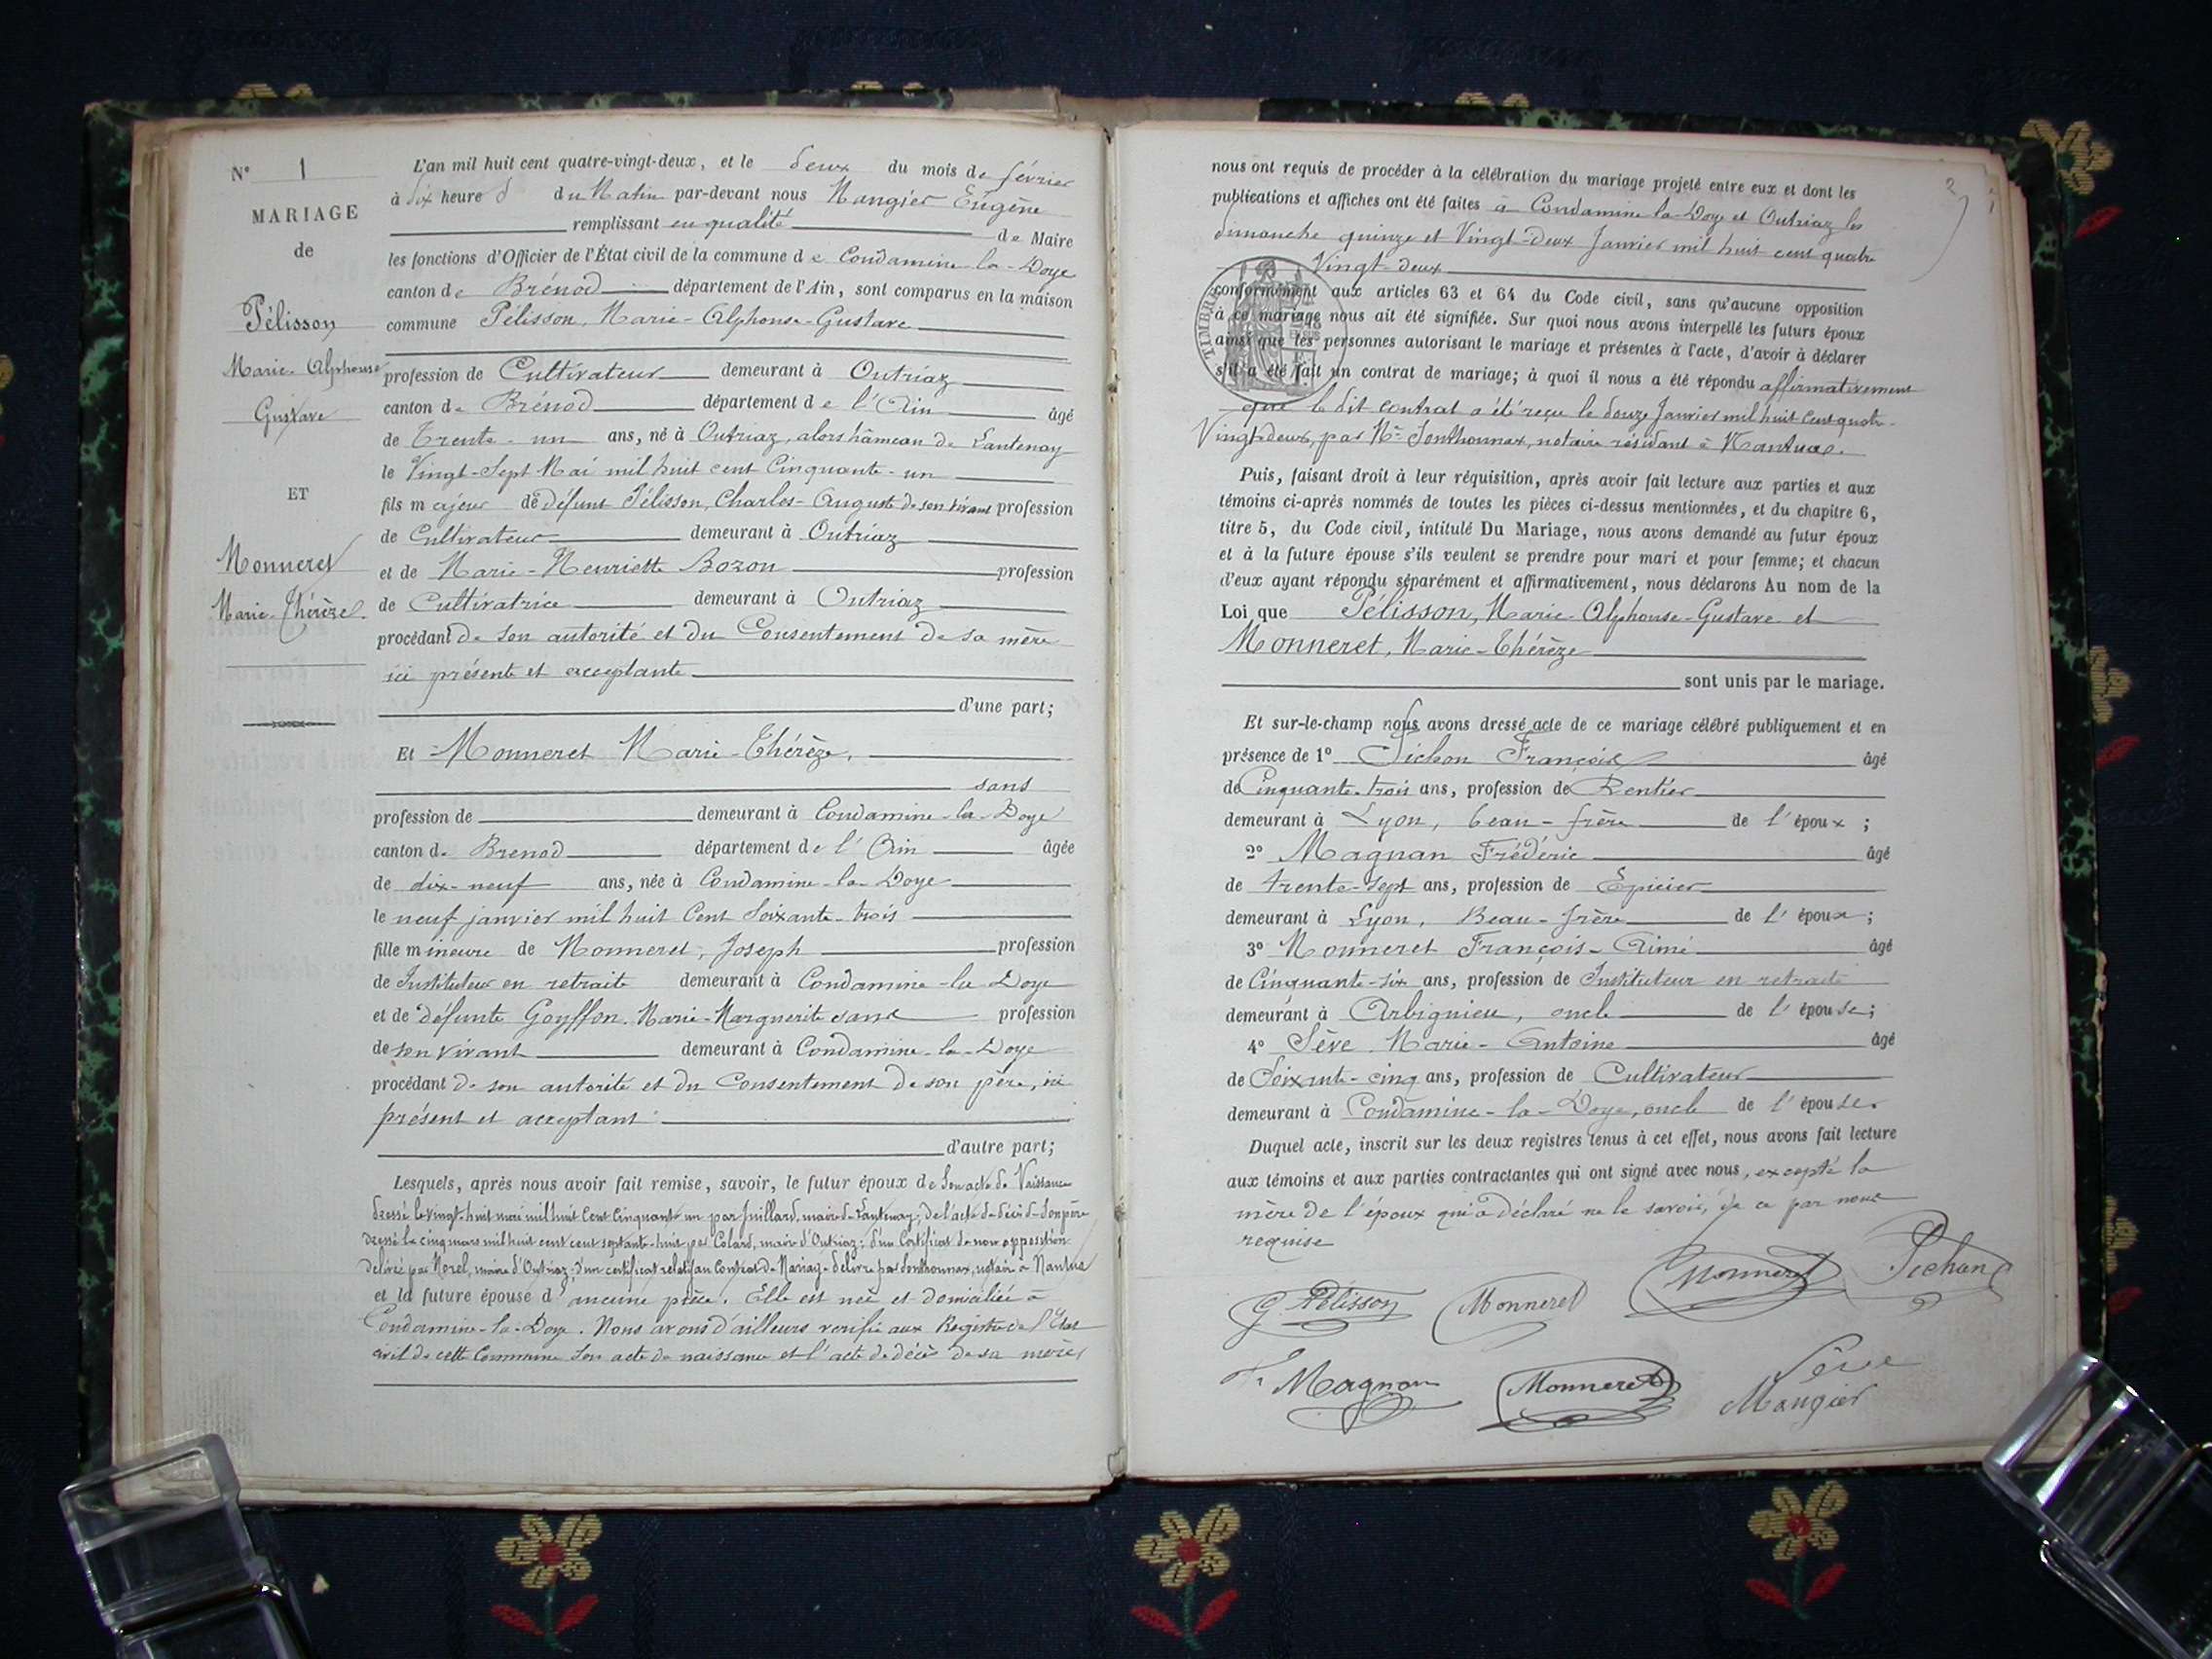 N° 1
MARIAGE
de
Pélisson
Marie-Alphonse
Gustave
ET
Monneret
Marie-Thérèze
L'an mil huit cent quatre-vingt-deux, et le deux du mois de février
à dix heures du Matin par-devant nous Mangier Eugène
remplissant en qualité de Maire
les fonctions d'Officier de l'État civil de la commune de Condamine-la-Doye
canton de Brénod département de l'Ain, sont comparus en la maison
commune Pélisson, Marie-Alphonse-Gustave
profession de Cultivateur demeurant à Outriaz
canton de Brénod département de l'Ain âgé
de Trente-un ans, né à Outriaz, alors hameau de Lantenay
le Vingt-Sept Mai mil huit cent Cinquante-un
fils majeur de défunt Pélisson, Charles-Auguste de son vivant profession
de Cultivateur demeurant à Outriaz
et de Marie-Henriette Bozon profession
de Cultivatrice demeurant à Outriaz
procédant de son autorité et du Consentement de sa mère
ici présente et acceptante
d'une part;
Et Monneret Marie-Thérèze,
sans
profession de demeurant à Condamine-la-Doye
canton de Brenod département de l'Ain âgée
de dix-neuf ans, née à Condamine-la-Doye
le neuf janvier mil huit Cent Soixante-trois
fille mineure de Monneret, Joseph profession
de Instituteur en retraite demeurant à Condamine-la-Doye
et de défunte Gouffon, Marie-Marguerite sans profession
de son vivant demeurant à Condamine-la-Doye
procédant de son autorité et du Consentement de son père, ici
présent et acceptant
d'autre part;
Lesquels, après nous avoir fait remise, savoir, le futur époux de Son acte de Naissance
dressé le vingt-huit mai mil huit Cent Cinquante un par Juillard, maire de Lantenay; de l'acte de décès de Son père
dressé le cinq mars mil huit cent cent septante-huit par Colard, maire d'Outriaz; d'un Certificat de non opposition
délivré par Morel, maire d'Outriaz; d'un certificat relatif au Contrat de Mariage délivré par Jonthonnax, notaire à Nantua
et la future épouse d'aucune pièce. Elle est née et domiciliée à
Condamine-la-Doye. Nous avons d'ailleurs verifié aux Registres de l'Etat
civil de cette Commune Son acte de naissance et l'acte de décès de sa mère,
2
nous ont requis de procéder à la célébration du mariage projeté entre eux et dont les
publications et affiches ont été faites à Condamine-la-Doye et Outriaz les
dimanche quinze et Vingt-deux Janvier mil huit cent quatre
Vingt-deux
TIMBRE
conformément aux articles 63 et 64 du Code civil, sans qu'aucune opposition
à ce mariage nous ait été signifiée. Sur quoi nous avons interpellé les futurs époux
ainsi que les personnes autorisant le mariage et présentes à l'acte, d'avoir à déclarer
s'il a été fait un contrat de mariage; à quoi il nous a été répondu affirmativement
que le dit contrat a été reçu le douze Janvier mil huit Cent quatre-
Vingt-deux, par Me Jonthonnax, notaire résidant à Nantua.
Puis, faisant droit à leur réquisition, après avoir fait lecture aux parties et aux
témoins ci-après nommés de toutes les pièces ci-dessus mentionnées, et du chapitre 6,
titre 5, du Code civil, intitulé Du Mariage, nous avons demandé au futur époux
et à la future épouse s'ils veulent se prendre pour mari et pour femme; et chacun
d'eux ayant répondu séparément et affirmativement, nous déclarons Au nom de la
Loi que Pélisson, Marie-Alphonse-Gustave et
Monneret, Marie-Thérèze
sont unis par le mariage.
Et sur-le-champ nous avons dressé acte de ce mariage célébré publiquement et en
présence de 1° Pichon François âgé
de Cinquante-trois ans, profession de Rentier
demeurant à Lyon, beau-frère de l'époux;
2° Magnan Frédéric âgé
de trente-sept ans, profession de Epicier
demeurant à Lyon, Beau-frère de l'époux;
3° Monneret François-Aimé âgé
de Cinquante-six ans, profession de Instituteur en retraite
demeurant à Arbignieu, oncle de l'épouse;
4° Sève Marie-Antoine âgé
de Soixante-cinq ans, profession de Cultivateur
demeurant à Condamine-la-Doye, oncle de l'épouse.
Duquel acte, inscrit sur les deux registres tenus à cet effet, nous avons fait lecture
aux témoins et aux parties contractantes qui ont signé avec nous, excepté la
mère de l'époux qui a déclaré ne le savoir, de ce par nous
requise
G Pélisson Monneret Monneret Pichon
F. Magnan Monneret Sève
Mangier